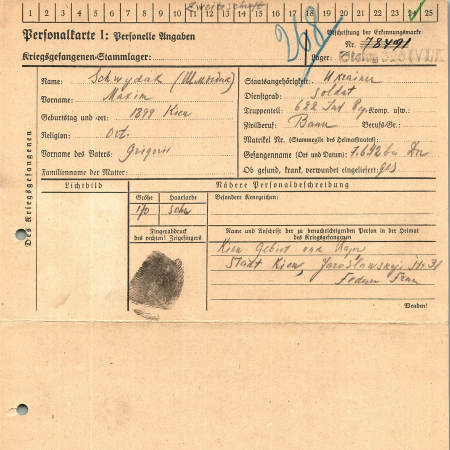 Zweitschrift
1 2 3 4 5 6 7 8 9 10 11 12 13 14 15 16 17 18 19 20 21 22 23 24 25
Personalkarte 1: Personelle Angaben
Kriegsgefangenen-Stammlager:
268
Beschriftung der Erkennungsmarke
Nr. 78491
Lager:
Des Kriegsgefangenen
Name: Schwydak
Vorname: Maxim
Geburtstag und -ort: 1899 Kiew
Religion: Ort.
Vorname des Vaters: Grigorii
Familienname der Mutter:
Staatsangehörigkeit: Ukrainer
Dienstgrad: Soldat
Truppenteil: 622 Inf. Rg. Komp. usw.
Zivilberuf: Bauer Berufs-Gr.
Matrikel Nr. (Stammrolle des Heimatstaates)
Gefangennahme (Ort und Datum): bei
Ob gesund, krank, verwundet eingeliefert: ges
Lichtbild
Nähere Personalbeschreibung
Größe Haarfarbe
170 Schw.
Besondere Kennzeichen:
Fingerabdruck
des rechten! Zeigefingers
Name und Anschrift der zu benachrichtigenden Person in der Heimat
des Kriegsgefangenen
Kiew Gebiet und Rayon
Stadt Kiew, Jaroslawskaja Str 31
Frau
Wenden!